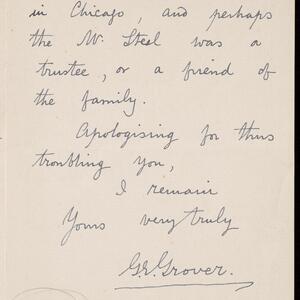 in Chicago, and perhaps
the Mr. Steel was a
trustee, or a friend of
the family.
Apologising for thus
troubling you,
I remain
Yours very truly
G.E. Grover.